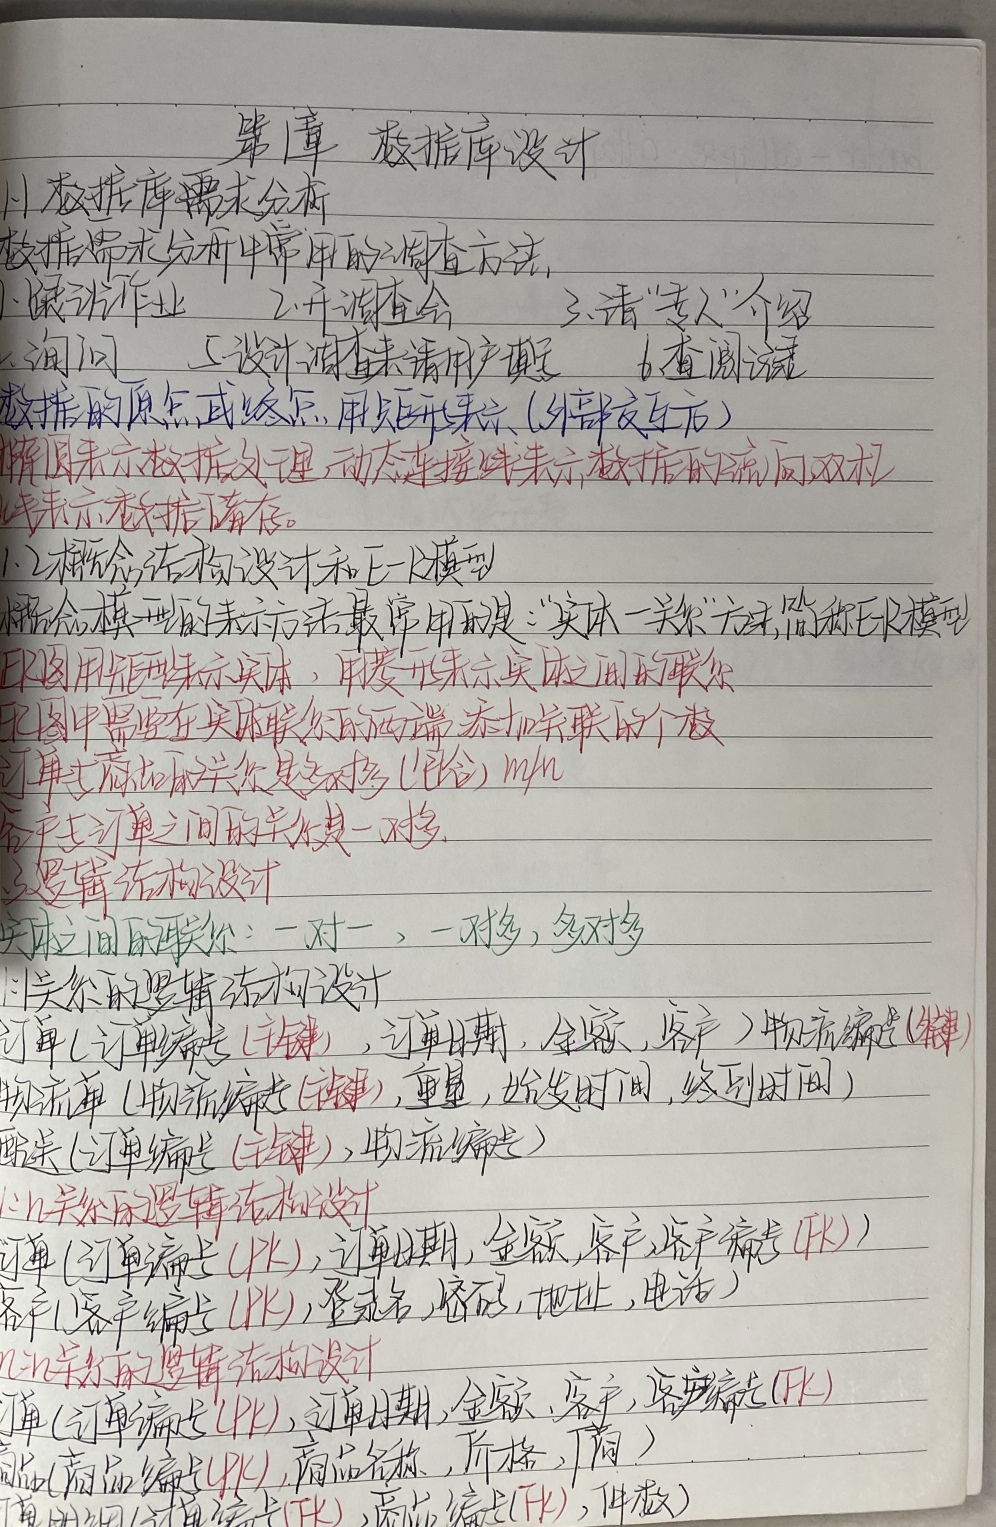 第1章 数据库设计
1.1 数据库需求分析
数据需求分析中常用的调查方法,
1.跟班作业 2.开调查会 3.请"专人"介绍
4.询问 5.设计调查表请用户填写 6.查阅记录
数据的原点或终点用矩形表示、(外部交互方)
椭圆表示数据处理,动态连接线表示数据的流向,双杠
线表示数据储存。
1.2 概念结构设计和E-R模型
概念模型的表示方法最常用的是:"实体一关系"方法,简称E-R模型
ER图用矩型表示实体,用菱形表示实体之间的联系
ER图中需要在实体联系的两端添加关联的个数
订单与商品的关系是多对多(组合)m/n
客户与订单之间的关系是一对多.
.3逻辑结构设计
实体之间的联系:一对一、一对多,多对多
1:1关系的逻辑结构设计
订单(订单编号(主键),订单日期,金额,客户)物流编号(外键)
物流单(物流编号(主键),重量,始发时间,终到时间)
配送(订单编号(主键),物流编号)
1:n关系的逻辑结构设计
订单(订单编号(PK),订单日期,金额,客户,客户编号(FK))
客户(客户编号(PK),登录名,密码,地址,电话)
n:n关系的逻辑结构设计
订单(订单编号(PK),订单日期,金额,客户,客户编号(FK)
商品(商品编号(PK),商品名称,价格,厂商)
订单明细(订单编号(FK),商品编号(FK),件数)